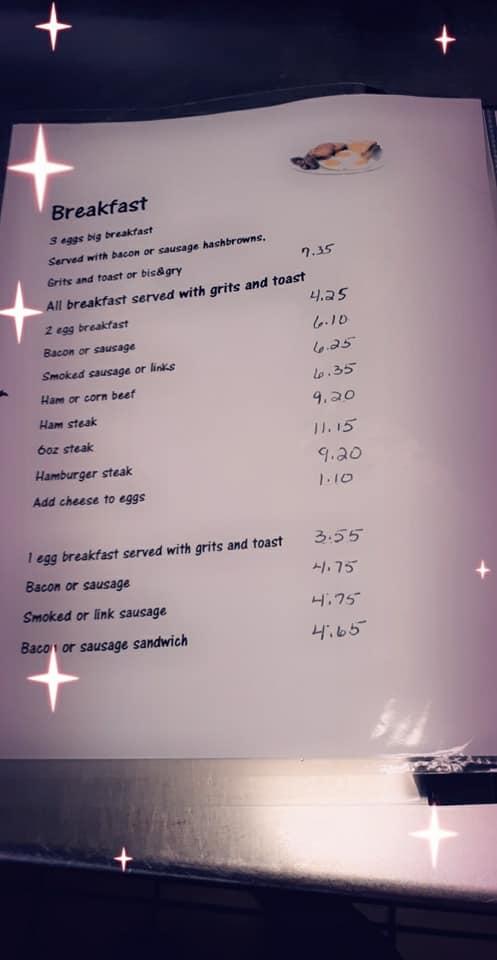 Breakfast
3 eggs big breakfast
Served with bacon or sausage hashbrowns.
Grits and toast or bis&gry 7.35
All breakfast served with grits and toast
2 egg breakfast 4.25
Bacon or sausage 6.10
Smoked sausage or links 6.25
Ham or corn beef 6.35
Ham steak 9.20
6oz steak 11.15
Hamburger steak 9.20
Add cheese to eggs 1.10
1 egg breakfast served with grits and toast 3.55
Bacon or sausage 4.75
Smoked or link sausage 4.75
Bacon or sausage sandwich 4.65